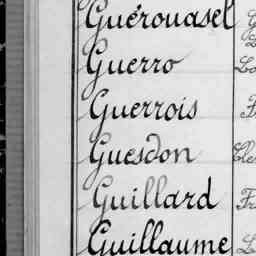 Guérouasel
Guerro
Guerrois
Guesdon
Guillard
Guillaume